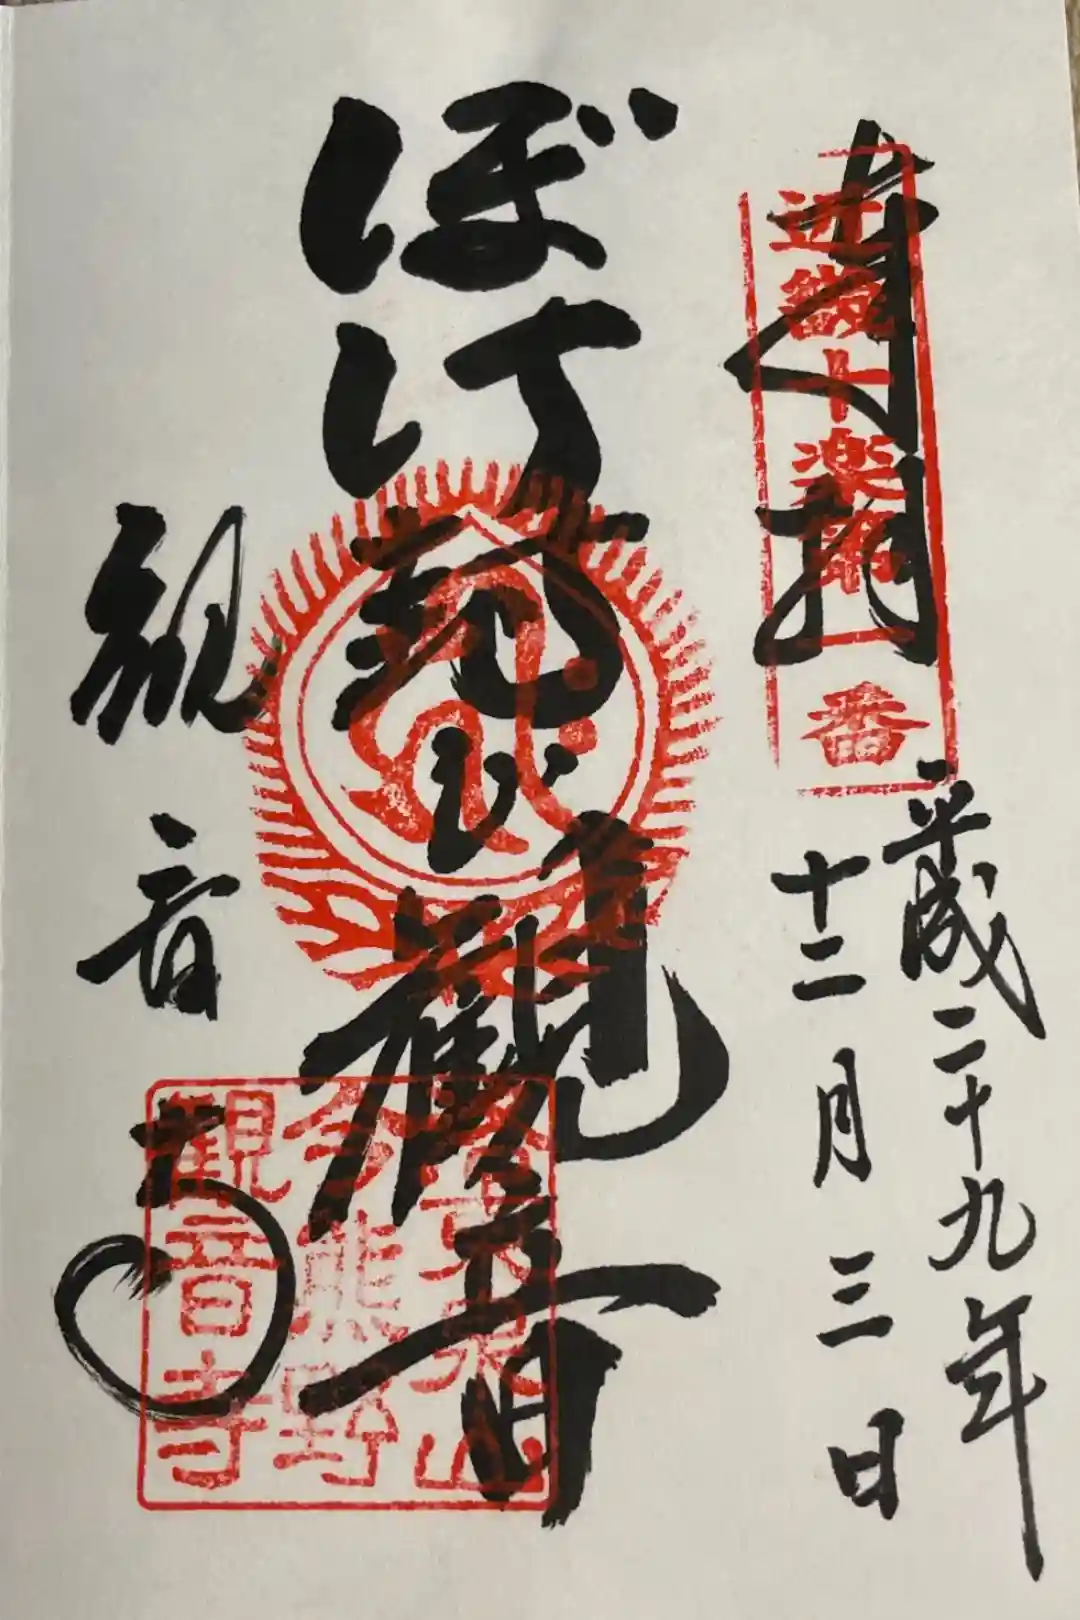 奉拝
近畿十楽第一番
平成二十九年
十二月三日
ぼけ封じ觀音
観音寺
東泉山
今熊野
觀音寺